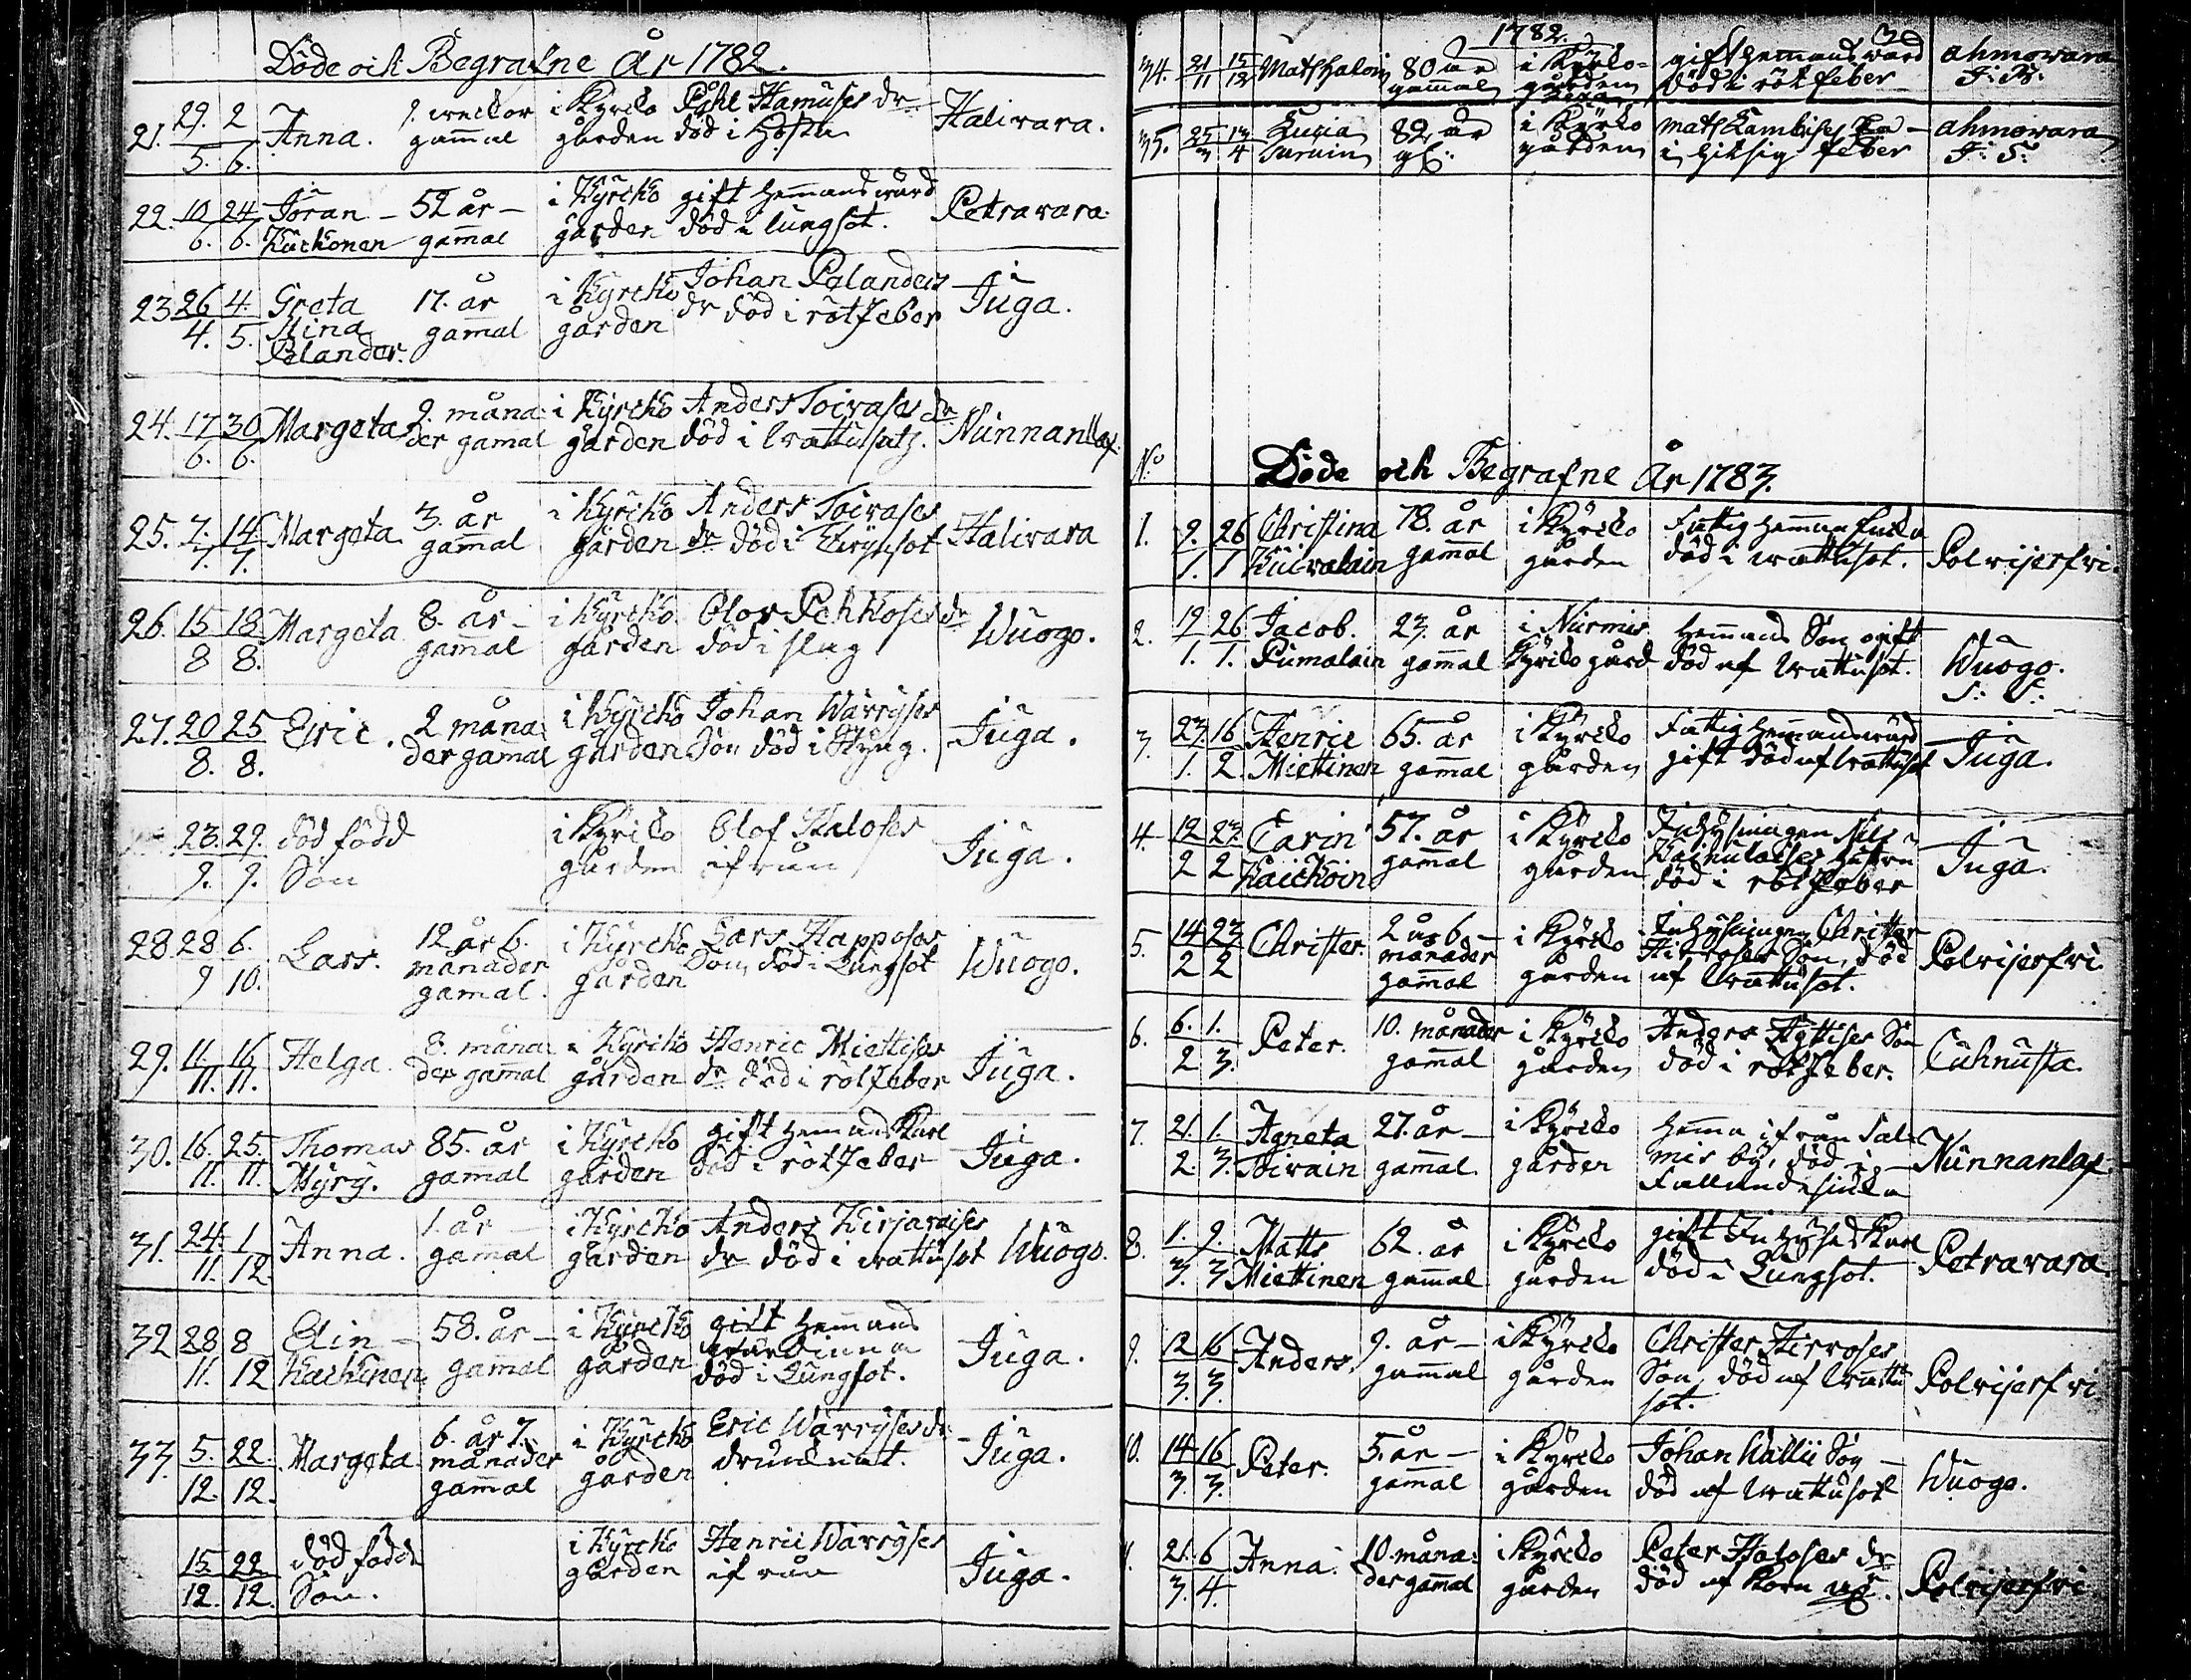 Döde och Begrafne År 1782.
21. 29/5. 2/6. Anna. 9. weckor gammal i Kyrcko gården Påhl Hamuses dr död i Hosta Halivara.
22. 10/6. 24/6. Jöran Kackonen 52 år gammal i Kyrcko gården gift Hemmans wärd död i lungsot. Petravara.
23 26/4. 4/5. Greta Stina Polander. 17. år gamal i Kyrcko gården Johan Polanders dr död i rötfeber Juga.
24. 17/6. 30/6. Margeta 9. måna der gamal i Kyrcko gården Anders Toivases dr död i Nunnanlax.
25. 7/7. 14/7. Margeta 3. år gamal i Kyrcko gården Anders Toivases dr död i Halivara
26. 15/8 18/8. Margeta 8. år gamal i Kyrcko gården Olof Pehkoses dr död i slag Wuogo.
27. 20/8. 25/8. Eric. 2 måna der gamal i Kyrcko gården Johan Wärryses Son död i Styng. Juga.
23./9. 29./9. död född Son i Kyrcko gården Olof Haloses ifrån Juga.
28 28/9 6./10. Lars. 12 år 6. månader gamal. i Kyrcko gården Lars Happoses Son död i Lungsot Wuogo.
29. 11./11. 16/11. Helga. 8. måna der gamal i Kyrcko gården Henric Miettises dr död i rötfeber Juga.
30. 16./11. 25./11. Thomas Myry. 85. år gamal i Kyrcko gården gift Hemmans Karl död i rötfeber Juga.
31. 24/11. 1/12. Anna. 1. år gamal i Kyrcko gården Anders Kirjavaises dr död i wattusot Wuogo.
32 28/11. 8/12 Elin Kackinen 58. år gamal i Kyrcko gården gift Hemmans wärdinna död i Lungsot. Juga.
33 5./12. 22./12. Margeta 6. år 7. månader gamal i Kyrcko gården Eric Wärryses dr drunknat. Juga.
15/12. 22/12. död född Son. i Kyrcko gården Henric Wärryses ifrån Juga.
1782.
34. 21/11 15/12 Mats Haloin 80 år gammal i Kyrko gården gift Hemmans wärd död i rötfeber ahmovara
35. 25/3 13/4 Lucia Turuin 82 år gl. i Kyrko gården mats ahmovara
No Döde och Begrafne År 1783.
1. 9./1. 26/1 Christina Kuivalain 78. år gammal i Kyrcko gården Fattig Hemman Encka död i wattusot. Polvijerfvi.
2. 19/1. 26/1. Jacob. Pumalain 23. år gammal i Nurmis Kyrcko gård Hemmans Son ogift död af wattusot. Wuogo.
3. 23./1. 16/2. Henric Miettinen 65. år gammal i Kyrcko gården Fattig Hemmanswärd gift död af wattusot Juga.
4. 12/2 23./2 Carin Kaickoin 57. år gammal i Kyrcko gården Inhysningen Nils Kainulaises Hustru död i rötfeber Juga.
5. 14/2 23/2 Christer. 2 år 6. månader gammal i Kyrcko gården Inhysningen Christer Hirvoses Son, död af wattusot. Polvijerfvi.
6. 6./2 1./3. Peter. 10. månader gammal i Kyrcko gården Anders Hyttises Son död i rötfeber. Cuhnusta.
7. 21./2. 1./3. Agneta Toivain 27. år gammal i Kyrcko gården Hemma ifrån Sal mis by, död i Fallandesiuka Nunnanlax
8. 1./3. 9./3 Matts Miettinen 62. år gammal i Kyrcko gården gift Inhyses Karl död i Lungsot. Petravara.
9. 12/3. 16/3. Anders. 9. år gammal i Kyrcko gården Christer Hirvoses Son, död af wattu sot. Polvijerfvi
10. 14/3. 16/3. Peter. 5. år gammal i Kyrcko gården Johan Wallii Son död af wattusot Wuogo.
21./3. 6/4. Anna. 10. måna der gammal i Kyrcko gården Peter Haloses dr död af Polvijerfvi